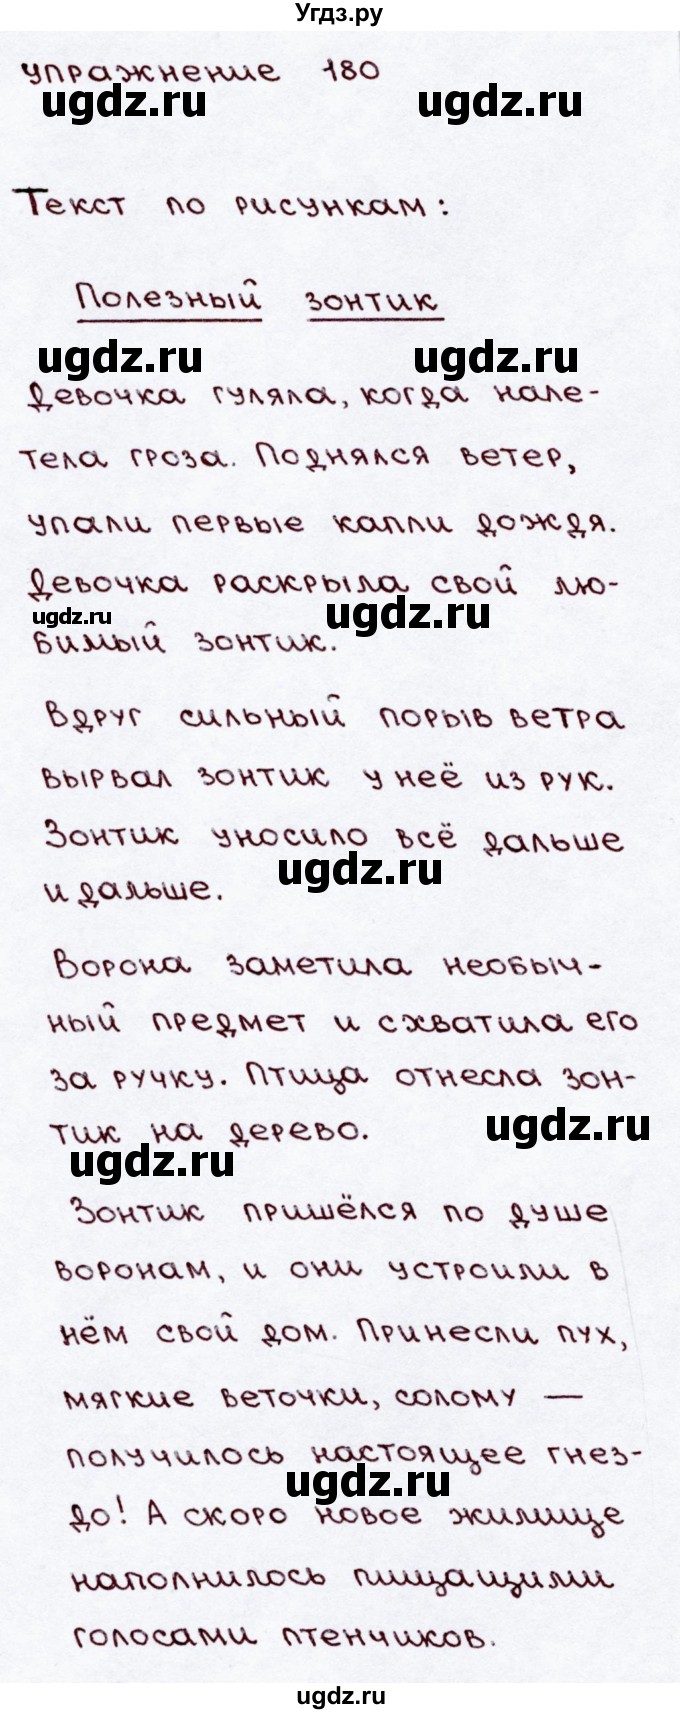 Угдз.ру
упражнение 180
ugdz.ru ugdz.ru
Текст по рисункам:
Полезный зонтик
ugdz.ru ugdz.ru
Девочка гуляла, когда нале-
тела гроза. Поднялся ветер,
упали первые капли дождя.
Девочка раскрыла свой лю-
ugdz.ru ugdz.ru
бимый зонтик.
Вдруг сильный порыв ветра
вырвал зонтик у неё из рук.
Зонтик уносило всё дальше
ugdz.ru
и дальше.
Ворона заметила необыч-
ный предмет и схватила его
за ручку. Птица отнесла зон-
ugdz.ru
тик на дерево.
ugdz.ru
Зонтик пришёлся по душе
воронам, и они устроили в
нём свой дом. Принесли пух,
мягкие веточки, солому —
получилось настоящее гнез-
ugdz.ru
до! А скоро новое жилище
наполнилось пищащими
голосами птенчиков.
ugdz.ru